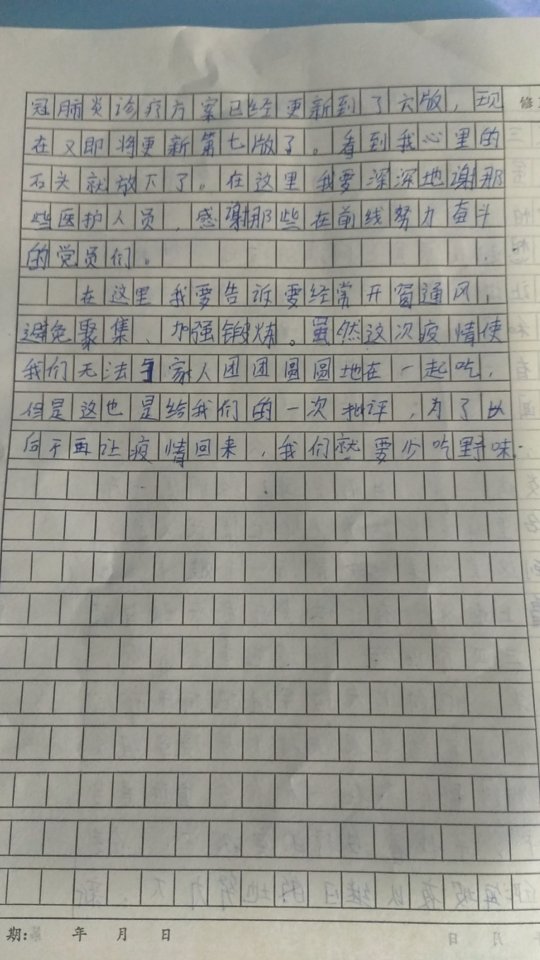 冠肺炎诊疗方案已经更新到了六版，现
修
在又即将更新第七版了。看到我心里的
石头就放下了。在这里我要深深地谢那
些医护人员，感谢那些在前线努力奋斗
的党员们。
在这里我要告诉要经常开窗通风，
避免聚集、加强锻炼。虽然这次疫情使
我们无法与家人团团圆圆地在一起吃，
但是这也是给我们的一次批评，为了以
后不再让疫情回来，我们就要少吃野味.
期: 年 月 日